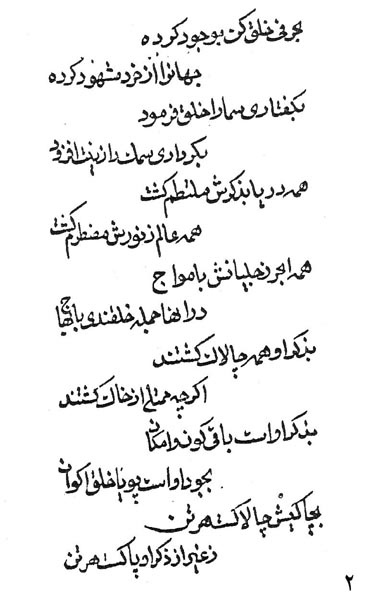 بحرفی خلق کن بوجود کرده
جهانرا از خرد شهود کرده
بگفتاری سما را خلق فرمود
بکرداری سمک را زینت افزود
همه دریا بذکرش ملتطم کشت
همه عالم ز نورش مضطرم کشت
همه ابحر ز تجلیاتش با مواج
در انها جمله خلقندی با بهاج
بذکر او همه چالاک کشتند
اکرچه ممتلی از خاک کشتند
بذکر او است باقی کون و امکان
بجود او است پویا خلق اکوان
بچالاکیش چالاکست هر تن
ز غیر از ذکر او پاکست هر تن
۲